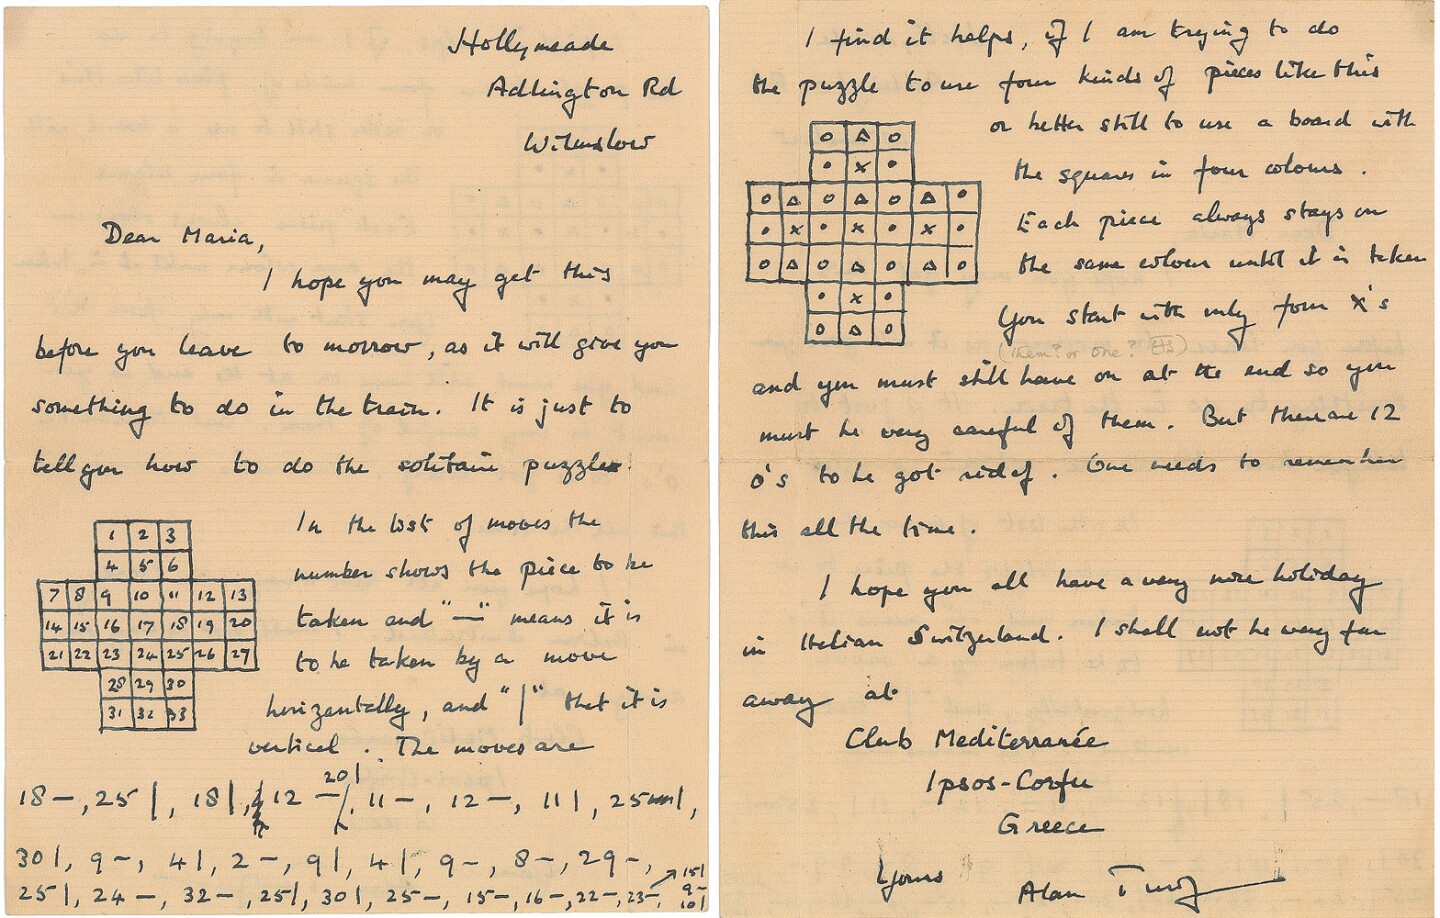 Hollymeade
Adlington Rd
Wilmslow
Dear Maria,
I hope you may get this
before you leave to morrow, as it will give you
something to do in the train. It is just to
tell you how to do the solitaire puzzle.
1 2 3
4 5 6
7 8 9 10 11 12 13
14 15 16 17 18 19 20
21 22 23 24 25 26 27
28 29 30
31 32 33
In the list of moves the
number shows the piece to be
taken and "—" means it is
to be taken by a move
horizontally, and "|" that it is
vertical. The moves are
20|
18 —, 25 |, 18 |, 12 —, 11 —, 12 —, 11 |, 25 |,
30 |, 9 —, 4 |, 2 —, 9 |, 4 |, 9 —, 8 —, 29 —,
25 |, 24 —, 32 —, 25 |, 30 |, 25 —, 15 —, 16 —, 22 —, 23 —,
15|
9-
10|
I find it helps, if I am trying to do
the puzzle to use four kinds of pieces like this
o △ o
• x •
o △ o △ o △ o
• x • x • x •
o △ o △ o △ o
• x •
o △ o
or better still to use a board with
the squares in four colours.
Each piece always stays on
the same colour until it is taken
You start with only four x's
(them? or one?
and you must still have on at the end so you
must be very careful of them. But there are 12
o's to be got rid of. One needs to remember
this all the time.
I hope you all have a very nice holiday
in Italian Switzerland. I shall not be very far
away at
Club Mediterranée
Ipsos-Corfu
Greece
Yours
Alan Turing